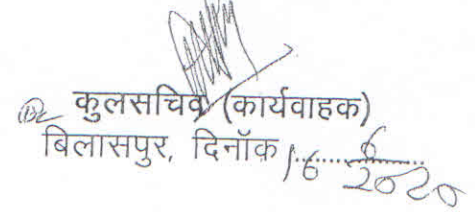 कुलसचिव (कार्यवाहक)
बिलासपुर, दिनॉक 16/6/2020